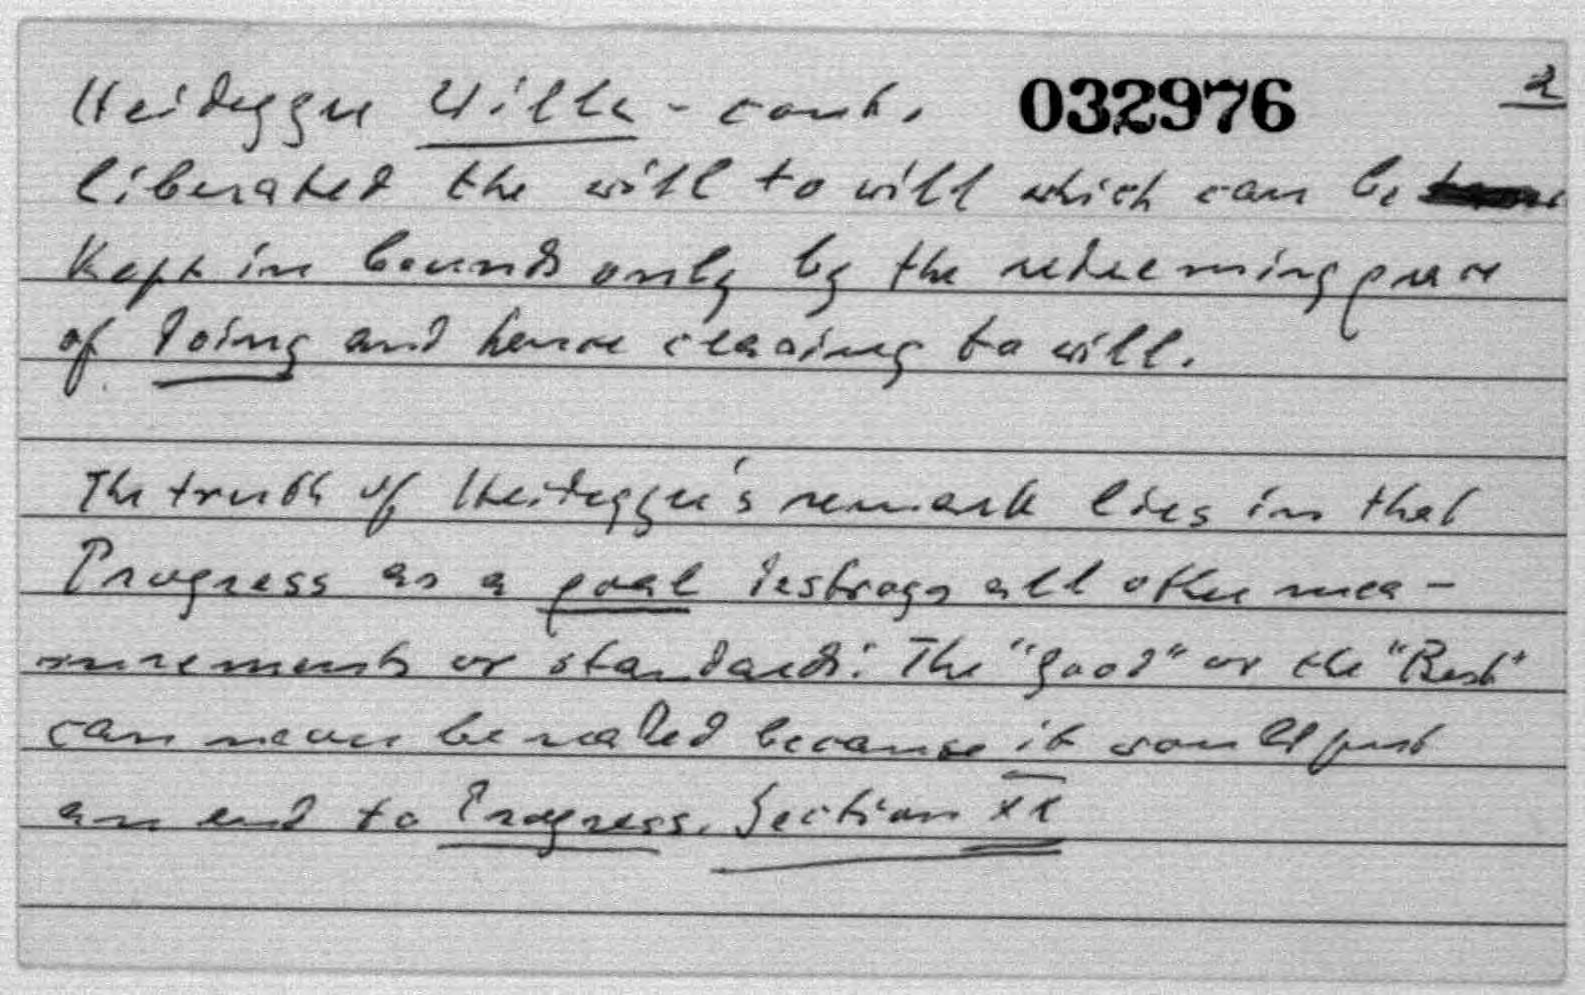 Heidegger Wille - cont. 032976 2
liberated the will to will which can be
kept in bounds only by the redeeming power
of doing and hence ceasing to will.
The truth of Heidegger's remark lies in that
Progress as a goal destroys all other mea-
surements or standards: The "good" or the "Best"
can never be reached because it would put
an end to Progress. Section XX